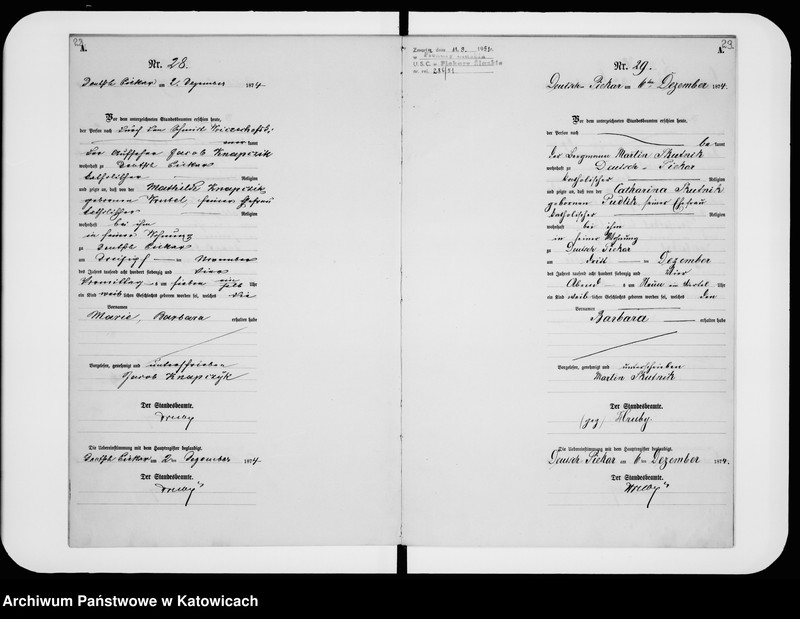 28
A.
Nr. 28.
Deutsch Piekar am 2. Dezember 1874
Vor dem unterzeichneten Standesbeamten erschien heute,
der Person nach durch den Schmid
kannt
der Aufseher Jacob Knapczik
wohnhaft zu Deutsch Piekar
katholischer Religion
und zeigte an, daß von der Mathilde Knapczik
geborenen seiner Ehefrau
katholischer Religion
wohnhaft bei ihm
in seiner Wohnung
zu Deutsch Piekar
am Dreißig November
des Jahres tausend acht hundert siebenzig und vier
Vormittag um sieben ein halb Uhr
ein Kind weiblichen Geschlechts geboren worden sei, welches die
Vornamen
Marie, Barbara erhalten habe
Vorgelesen, genehmigt und unterschrieben
Jacob Knapczyk
Der Standesbeamte.
Hruby
Die Uebereinstimmung mit dem Hauptregister beglaubigt.
Deutsch Piekar am 2ten Dezember 1874
Der Standesbeamte.
Hruby
29
A.
Nr. 29.
Deutsch-Piekar am 6ten Dezember 1874.
Vor dem unterzeichneten Standesbeamten erschien heute,
der Person nach
bekannt
der Bergmann Martin Skutnik
wohnhaft zu Deutsch-Piekar
katholischer Religion
und zeigte an, daß von der Catharina Skutnik
geborenen Pudlik seiner Ehefrau
katholischer Religion
wohnhaft bei ihm
in seiner Wohnung
zu Deutsch Piekar
am Dezember
des Jahres tausend acht hundert siebenzig und vier
Abend um Neun ein viertel Uhr
ein Kind weiblichen Geschlechts geboren worden sei, welches den
Vornamen
Barbara erhalten habe
Vorgelesen, genehmigt und unterschrieben
Martin Skutnik
Der Standesbeamte.
(gez) Hruby.
Die Uebereinstimmung mit dem Hauptregister beglaubigt.
Deutsch-Piekar am 6ten Dezember 1874.
Der Standesbeamte.
Hruby
Archiwum Państwowe w Katowicach